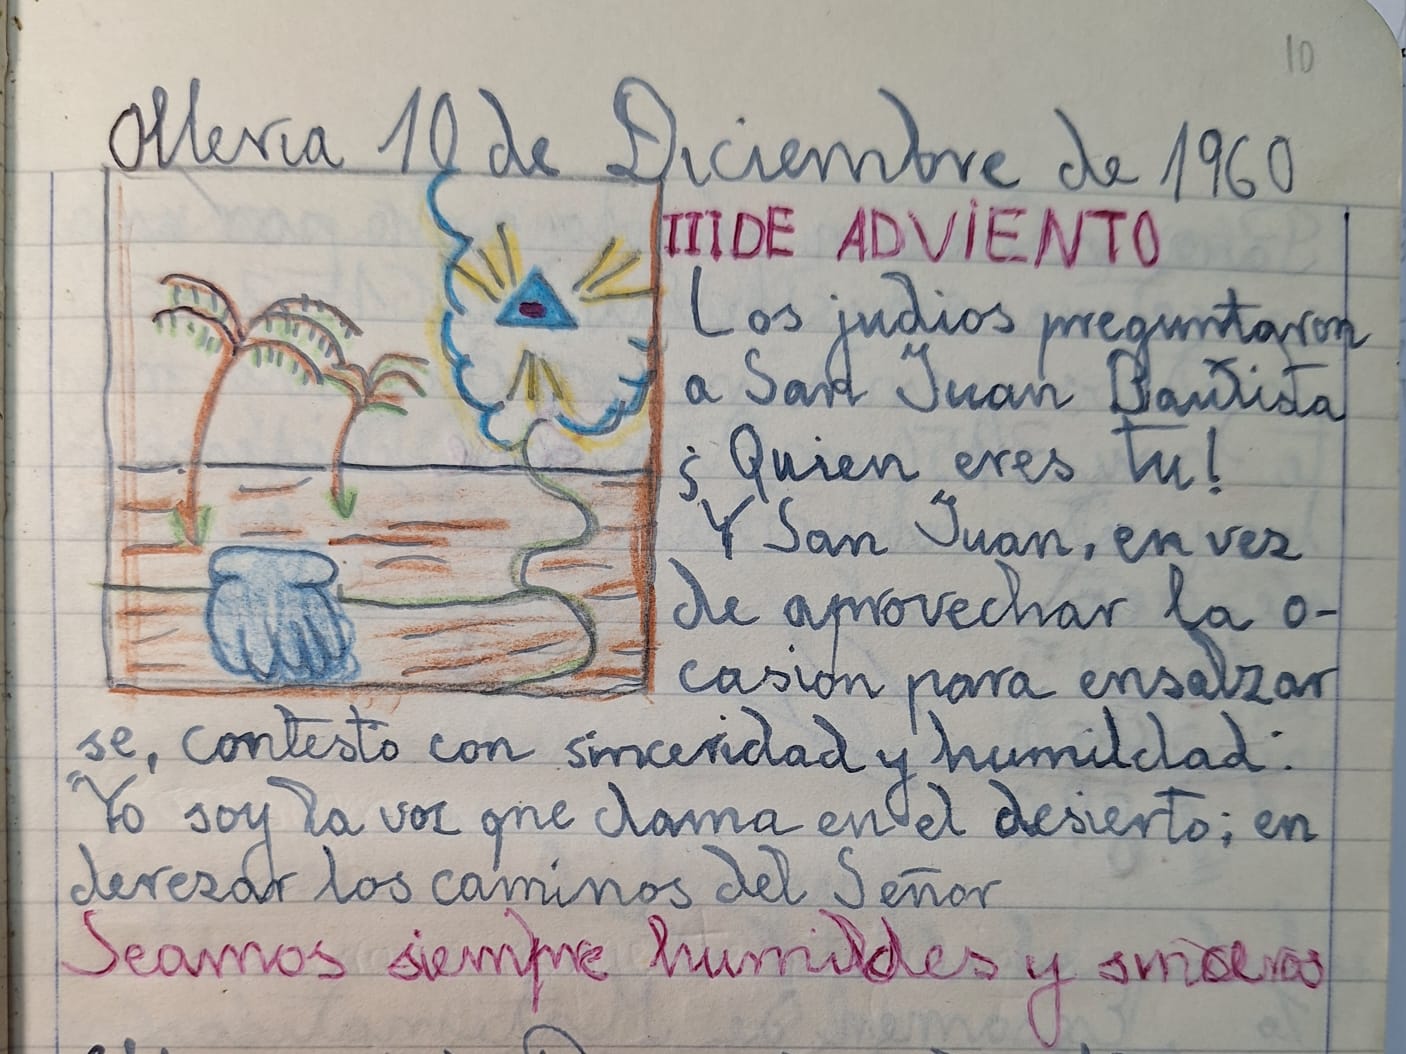 10
Olleria 10 de Diciembre de 1960
III DE ADViENTO
Los judios preguntaron
a San Juan Bautista
¡Quien eres tu!
Y San Juan, en vez
de aprovechar la o-
casion para ensalzar
se, contesto con sinceridad y humildad:
"Yo soy la voz que clama en el desierto; en
derezar los caminos del Señor
Seamos siempre humildes y sinceros